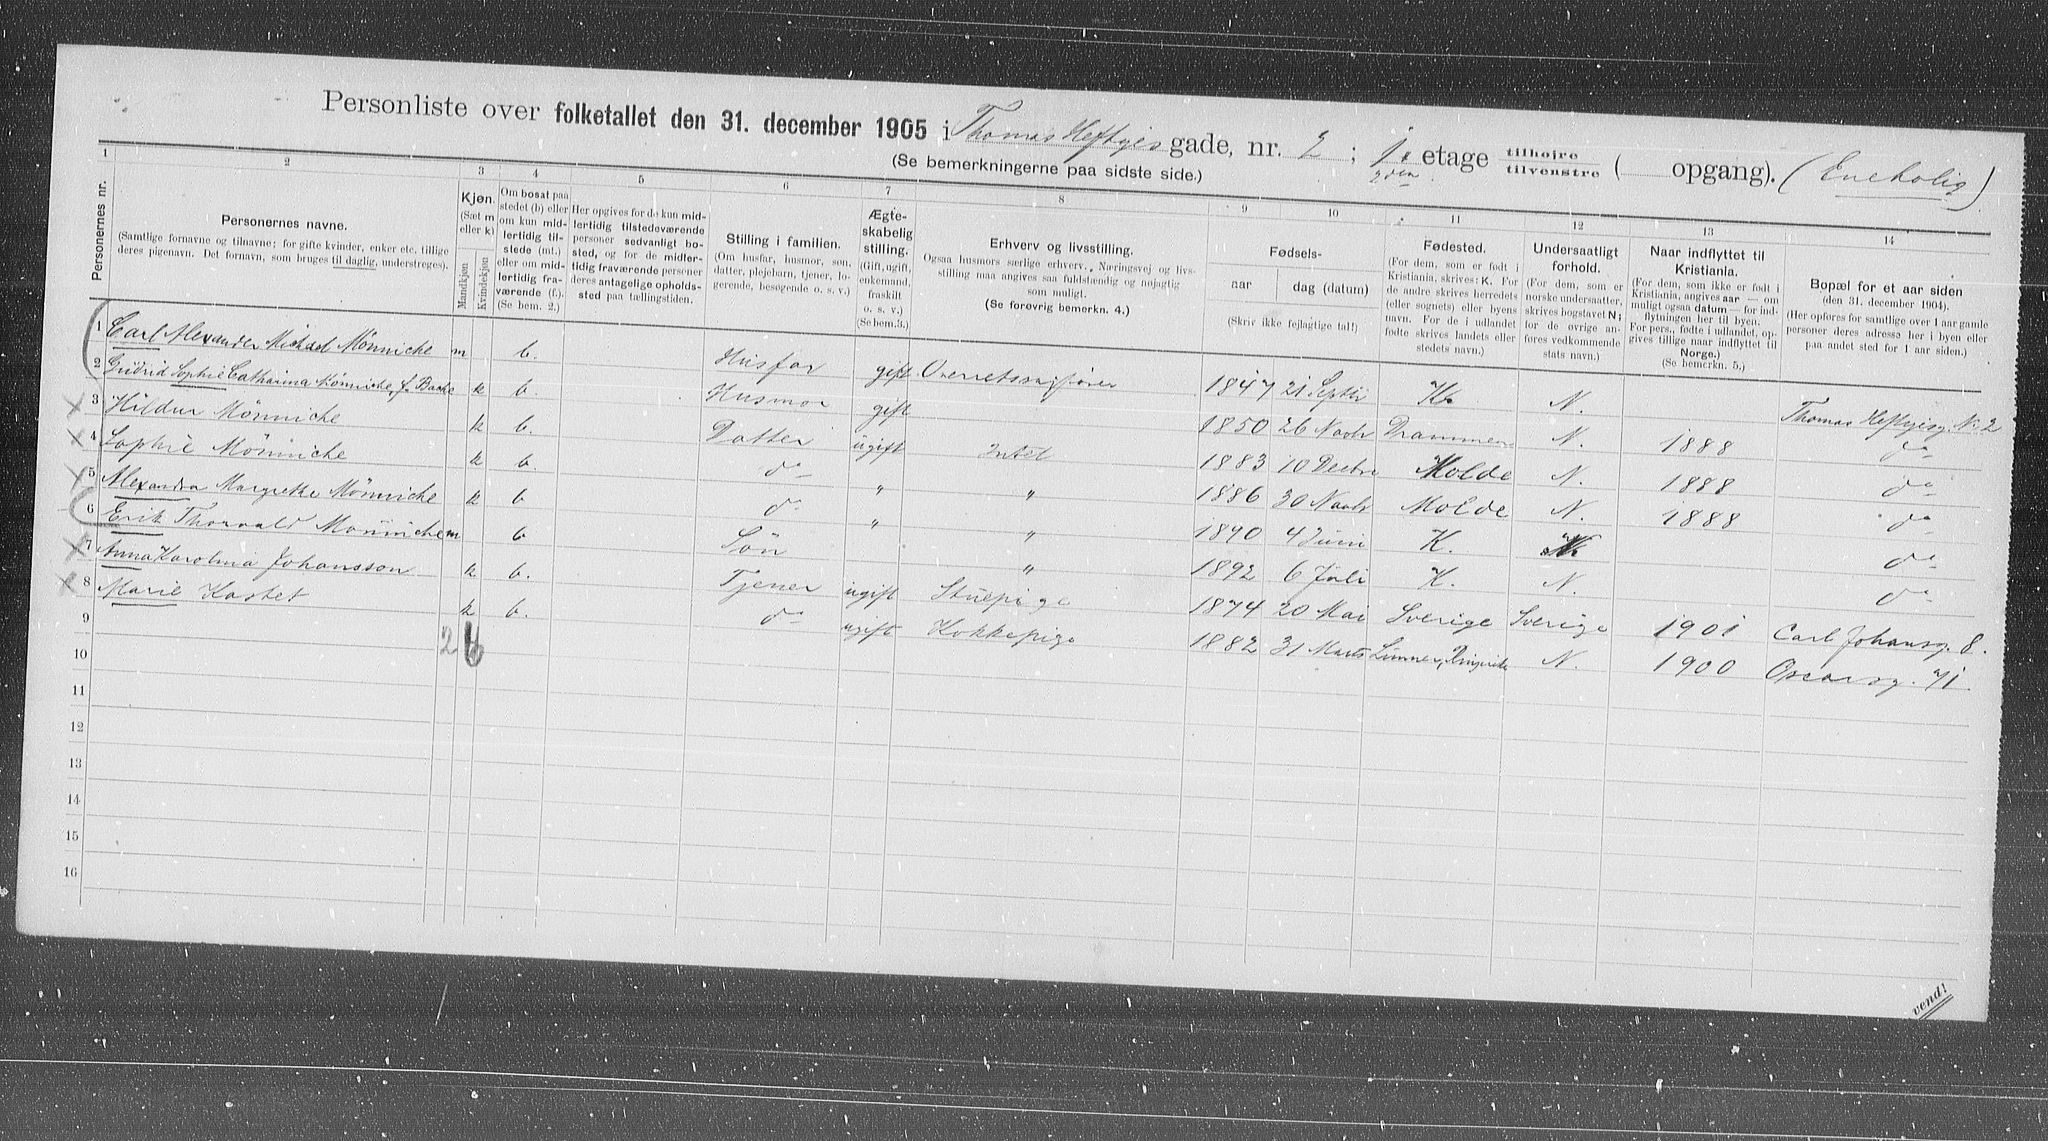 Personliste over folketallet den 31. december 1905 i Thomas Heftyes gade, nr. 2 ; 1. etage tilhøjre tilvenstre ( opgang). (Enebolig)
2den
(Se bemerkningerne paa sidste side.)
1 2 3 4 5 6 7 8 9 10 11 12 13 14
Personernes nr.
Personernes navne.
(Samtlige fornavne og tilnavne; for gifte kvinder, enker etc. tillige
deres pigenavn. Det fornavn, som bruges til daglig, understreges).
Kjøn.
(Sæt m
eller k)
Mandkjøn
Kvindekjøn
Om bosat paa
stedet (b) eller
om kun mid-
lertidig til-
stede (mt.)
eller om mid-
lertidig fra-
værende (f.).
(Se bem. 2.)
Her opgives for de kun mid-
lertidig tilstedeværende
personer sedvanligt bo-
sted, og for de midler-
tidig fraværende personer
deres antagelige opholds-
sted paa tællingstiden.
Stilling i familien.
(Om husfar, husmor, søn,
datter, plejebarn, tjener, lo-
gerende, besøgende o. s. v.)
Ægte-
skabelig
stilling.
(Gift, ugift,
enkemand,
fraskilt
o. s. v.)
(Se bem.3.)
Erhverv og livsstilling.
Ogsaa husmors særlige erhverv. Næringsvej og livs-
stilling maa angives saa fuldstændig og nøjagtig
som muligt.
(Se forøvrig bemerkn. 4.)
Fødsels-
aar
dag (datum)
(Skriv ikke fejlagtige tal!)
Fødested.
(For dem, som er født i
Kristiania, skrives: K. For
de andre skrives herredets
(eller sognets) eller byens
navn. For de i udlandet
fødte skrives landets eller
stedets navn.)
Undersaatligt
forhold.
(For dem, som er
norske undersaatter,
skrives bogstavet N;
for de øvrige an-
føres vedkommende
stats navn.)
Naar indflyttet til
Kristiania.
(For dem, som ikke er født i
Kristiania, angives aar — om
muligt ogsaa datum — for ind-
flytningen her til byen.
For pers., fødte i udlandet, op-
gives tillige naar indflyttet til
Norge.)
(Se bemerkn. 5.)
Bopæl for et aar siden
(den 31. december 1904).
(Her opføres for samtlige over 1 aar gamle
personer deres adresse her i byen eller
paa andet sted for 1 aar siden.)
1 Carl Alexander Michael Mönniche m b. Husfar gift Overretssagfører 1847 21 Septbr K. N. Thomas Heftyesg. N: 2
2 Gudrid Sophie Catharina Mönniche, f. Bache k b. Husmor gift 1850 26 Novbr Drammen N. 1888 do
3 Hildur Mönniche k b. Datter ugift Intet 1883 10 Decbr Molde N. 1888 do
4 Sophie Mönniche k b. do " " 1886 30 Novbr Molde N. 1888 do
5 Alexandra Margrethe Mönniche k b do " " 1890 4 Juni K. N. do
6 Erik Thorvald Mönniche m b Søn " 1892 6 Juli K. N. do
7 Anna Karolina Johansson k b. Tjener ugift Stuepige 1874 20 Mai Sverige Sverige 1901 Carl Johansg. 8.
8 Marie Hastet k b. do ugift Kokkepige 1882 31 Marts N. 1900 Oscarsg. 71.
9
2 6
10
11
12
13
14
15
16
vend!